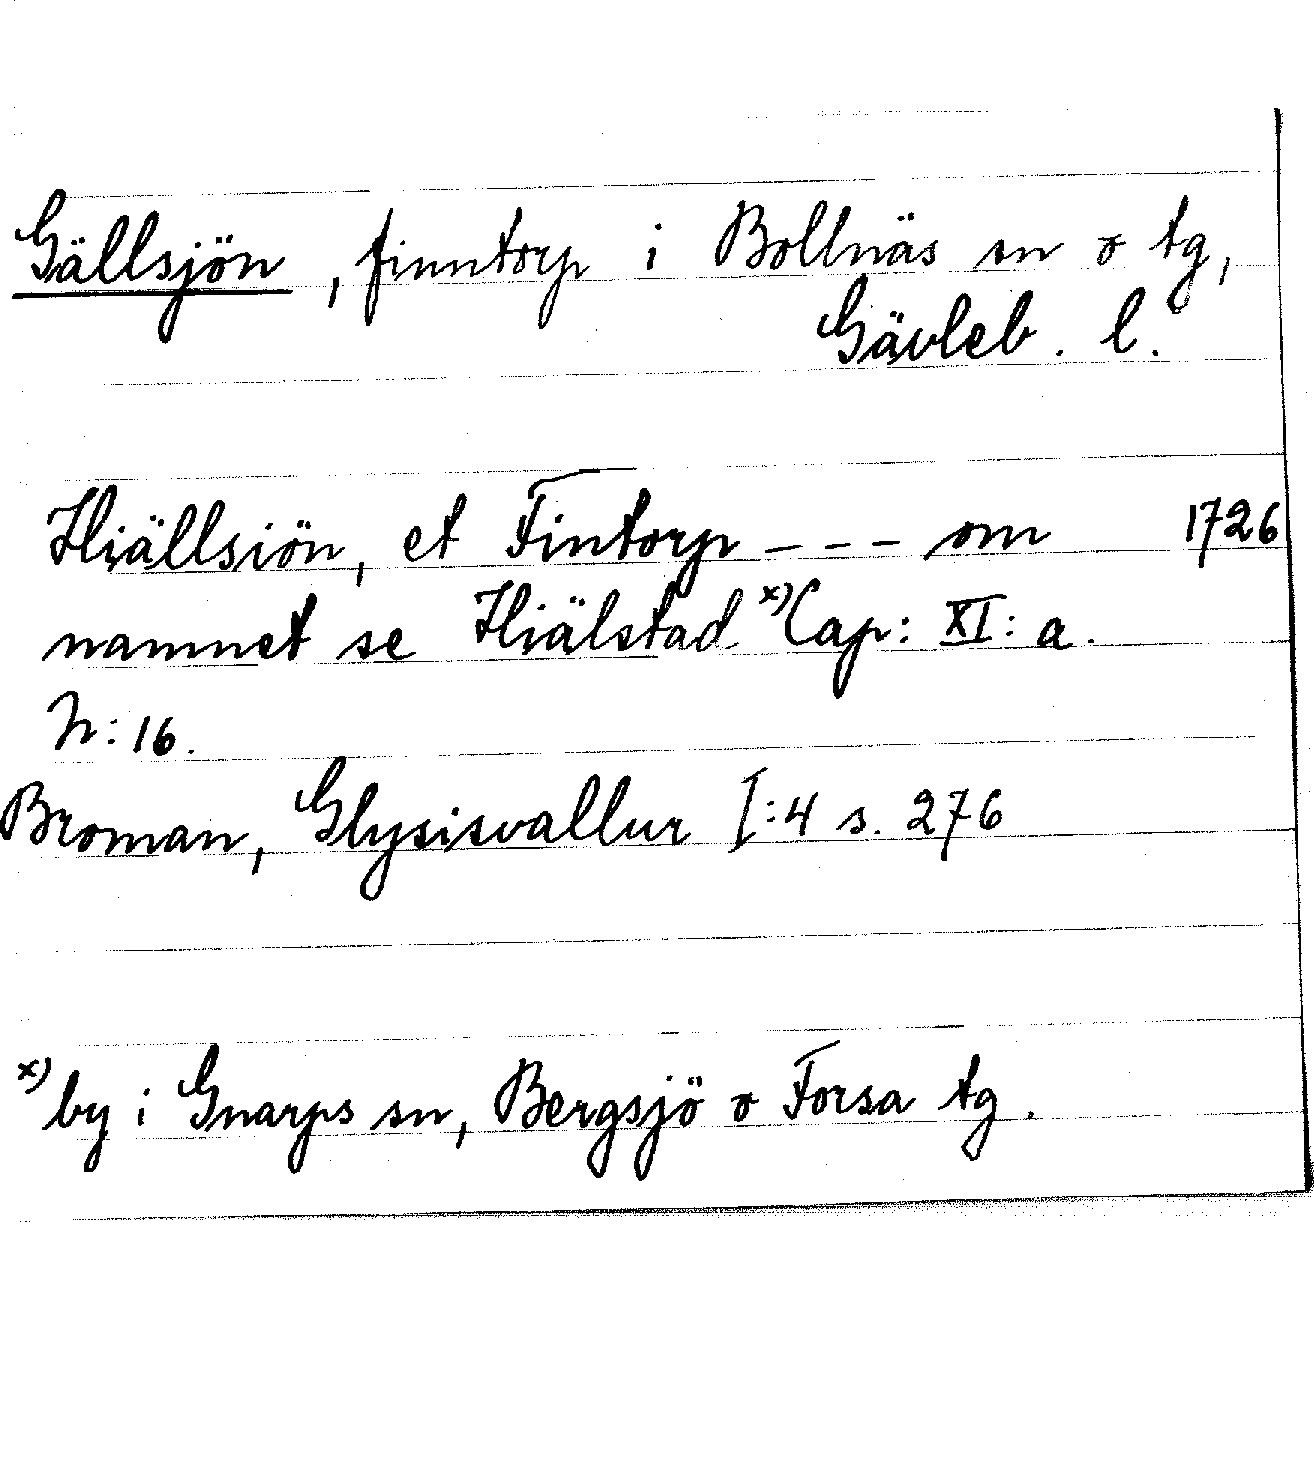 Gällsjön, finntorp i Bollnäs sn o tg,
Gävleb. l.
Hiällsiön, et Fintorp - - - om 1726
namnet se Hiälstad x) Cap: XI: a.
N: 16.
Broman, Glysisvallur I:4 s. 276
x) by i Gnarps sn, Bergsjö o Forsa tg.